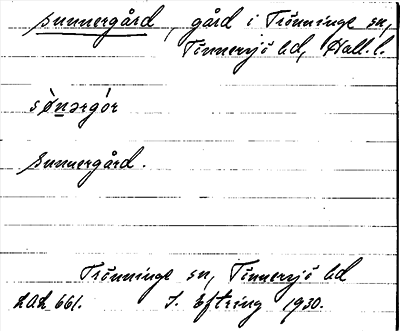 sunnergård, gård i Trönninge sn,
Tönnersjö hd, Hall. l.
sònərgór
sunnergård.
Trönninge sn, Tönnersjö hd
LAL 661. I. Eftring 1930.